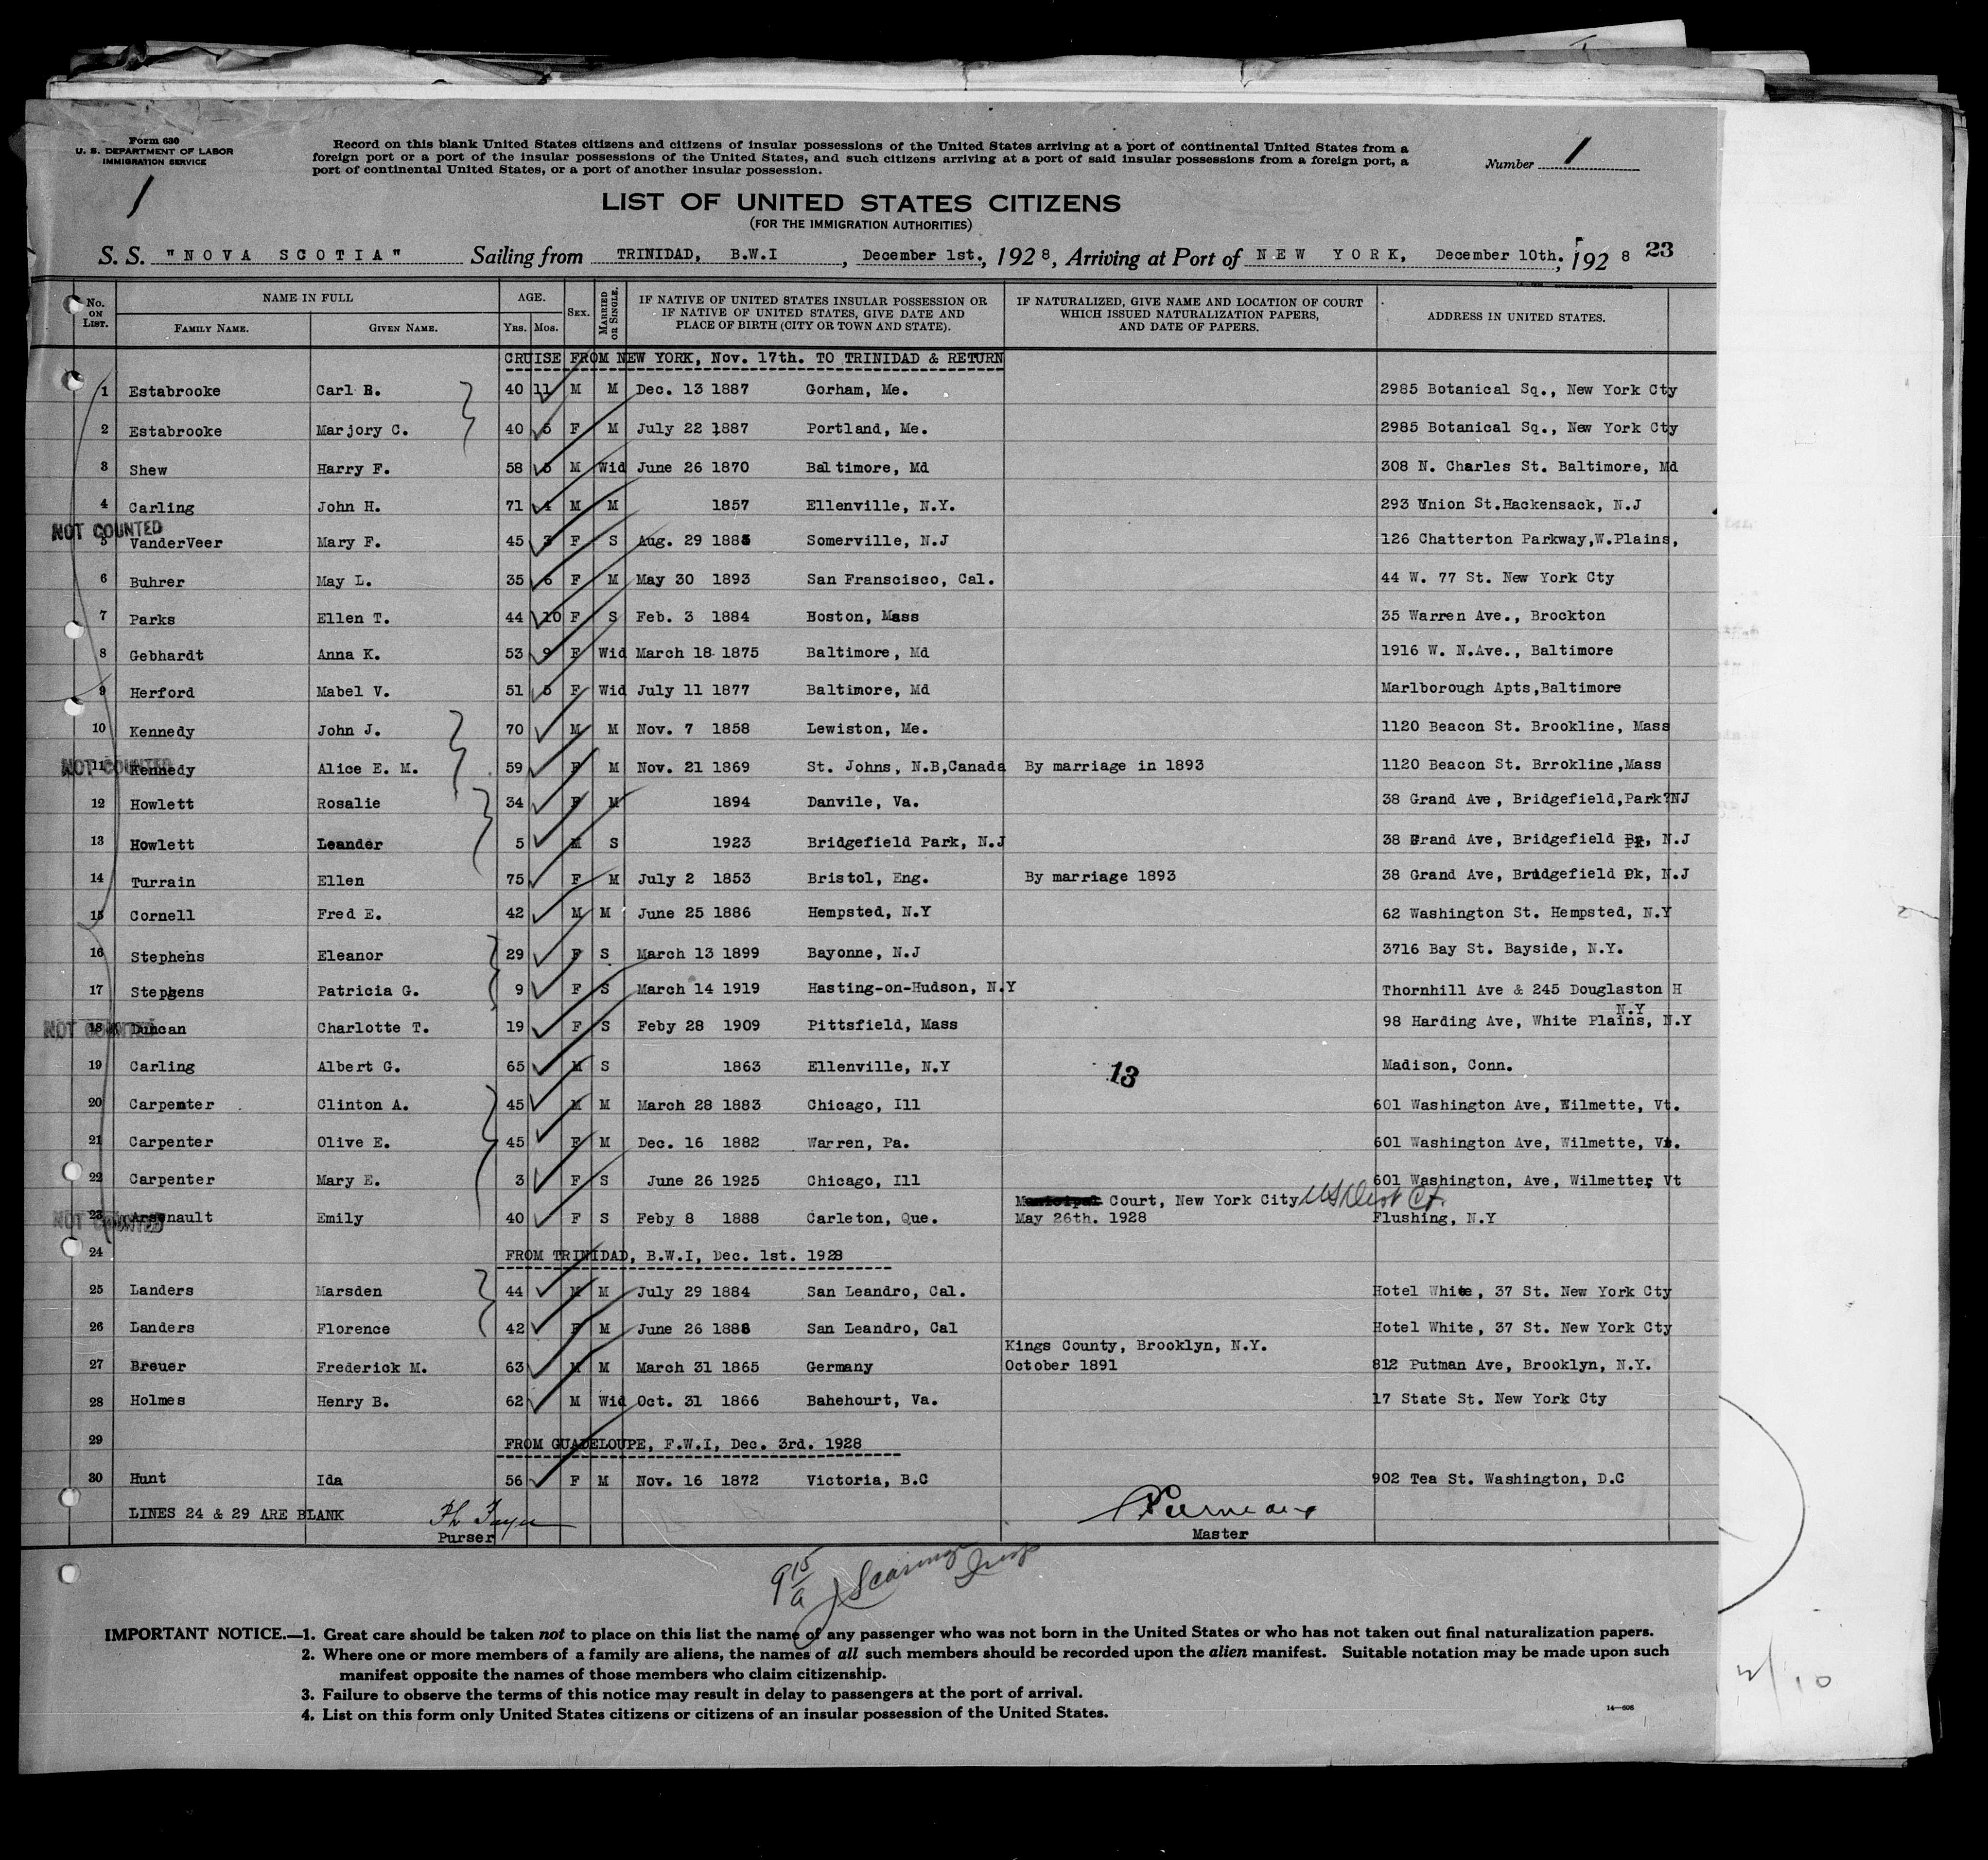 Form 630
U. S. DEPARTMENT OF LABOR
IMMIGRATION SERVICE
1
Record on this blank United States citizens and citizens of insular possessions of the United States arriving at a port of continental United States from a
foreign port or a port of the insular possessions of the United States, and such citizens arriving at a port of said insular possessions from a foreign port, a
port of continental United States, or a port of another insular possession.
Number 1
LIST OF UNITED STATES CITIZENS
(FOR THE IMMIGRATION AUTHORITIES)
S. S. "NOVA SCOTIA" Sailing from TRINIDAD, B.W.I, December 1st., 1928, Arriving at Port of NEW YORK, December 10th., 1928 23
No. ON LIST. NAME IN FULL FAMILY NAME. GIVEN NAME. AGE. Yrs. Mos. SEX. MARRIED OR SINGLE. IF NATIVE OF UNITED STATES INSULAR POSSESSION OR IF NATIVE OF UNITED STATES, GIVE DATE AND PLACE OF BIRTH (CITY OR TOWN AND STATE). IF NATURALIZED, GIVE NAME AND LOCATION OF COURT WHICH ISSUED NATURALIZATION PAPERS, AND DATE OF PAPERS. ADDRESS IN UNITED STATES.
CRUISE FROM NEW YORK, Nov. 17th. TO TRINIDAD & RETURN
1 Estabrooke Carl R. 40 11 M M Dec. 13 1887 Gorham, Me. 2985 Botanical Sq., New York Cty
2 Estabrooke Marjory C. 40 5 F M July 22 1887 Portland, Me. 2985 Botanical Sq., New York Cty
3 Shew Harry F. 58 5 M Wid June 26 1870 Baltimore, Md 308 N. Charles St. Baltimore, Md
4 Carling John H. 71 4 M M 1857 Ellenville, N.Y. 293 Union St.Hackensack, N.J
NOT COUNTED
5 VanderVeer Mary F. 45 3 F S Aug. 29 1883 Somerville, N.J 126 Chatterton Parkway,W.Plains,
6 Buhrer May L. 35 6 F M May 30 1893 San Franscisco, Cal. 44 W. 77 St. New York Cty
7 Parks Ellen T. 44 10 F S Feb. 3 1884 Boston, Mass 35 Warren Ave., Brockton
8 Gebhardt Anna K. 53 9 F Wid March 18 1875 Baltimore, Md 1916 W. N.Ave., Baltimore
9 Herford Mabel V. 51 5 F Wid July 11 1877 Baltimore, Md Marlborough Apts,Baltimore
10 Kennedy John J. 70 M M Nov. 7 1858 Lewiston, Me. 1120 Beacon St. Brookline, Mass
NOT COUNTED
11 Kennedy Alice E. M. 59 F M Nov. 21 1869 St. Johns, N.B,Canada By marriage in 1893 1120 Beacon St. Brrokline,Mass
12 Howlett Rosalie 34 F M 1894 Danvile, Va. 38 Grand Ave, Bridgefield,Park?NJ
13 Howlett Leander 5 M S 1923 Bridgefield Park, N.J 38 Grand Ave, Bridgefield Pk, N.J
14 Turrain Ellen 75 F M July 2 1853 Bristol, Eng. By marriage 1893 38 Grand Ave, Bridgefield Pk, N.J
15 Cornell Fred E. 42 M M June 25 1886 Hempsted, N.Y 62 Washington St. Hempsted, N.Y
16 Stephens Eleanor 29 F S March 13 1899 Bayonne, N.J 3716 Bay St. Bayside, N.Y.
17 Stephens Patricia G. 9 F S March 14 1919 Hasting-on-Hudson, N.Y Thornhill Ave & 245 Douglaston H
N.Y
NOT COUNTED
18 Duncan Charlotte T. 19 F S Feby 28 1909 Pittsfield, Mass 98 Harding Ave, White Plains, N.Y
19 Carling Albert G. 65 M S 1863 Ellenville, N.Y 13 Madison, Conn.
20 Carpenter Clinton A. 45 M M March 28 1883 Chicago, Ill 601 Washington Ave, Wilmette, Vt.
21 Carpenter Olive E. 45 F M Dec. 16 1882 Warren, Pa. 601 Washington Ave, Wilmette, Vt.
22 Carpenter Mary E. 3 F S June 26 1925 Chicago, Ill 601 Washington, Ave, Wilmette, Vt
Municipal Court, New York City US Dist Ct.
NOT COUNTED
23 Arsenault Emily 40 F S Feby 8 1888 Carleton, Que. May 26th. 1928 Flushing, N.Y
24 FROM TRINIDAD, B.W.I, Dec. 1st. 1928
25 Landers Marsden 44 M M July 29 1884 San Leandro, Cal. Hotel White, 37 St. New York Cty
26 Landers Florence 42 F M June 26 1886 San Leandro, Cal Hotel White, 37 St. New York Cty
Kings County, Brooklyn, N.Y.
27 Breuer Frederick M. 63 M M March 31 1865 Germany October 1891 812 Putman Ave, Brooklyn, N.Y.
28 Holmes Henry B. 62 M Wid Oct. 31 1866 Bahehourt, Va. 17 State St. New York Cty
29 FROM GUADELOUPE, F.W.I, Dec. 3rd. 1928
30 Hunt Ida 56 F M Nov. 16 1872 Victoria, B.C 902 Tea St. Washington, D.C
LINES 24 & 29 ARE BLANK
Purser Master
9 15/a
IMPORTANT NOTICE.—1. Great care should be taken not to place on this list the name of any passenger who was not born in the United States or who has not taken out final naturalization papers.
2. Where one or more members of a family are aliens, the names of all such members should be recorded upon the alien manifest. Suitable notation may be made upon such
manifest opposite the names of those members who claim citizenship.
3. Failure to observe the terms of this notice may result in delay to passengers at the port of arrival.
4. List on this form only United States citizens or citizens of an insular possession of the United States.
14—606